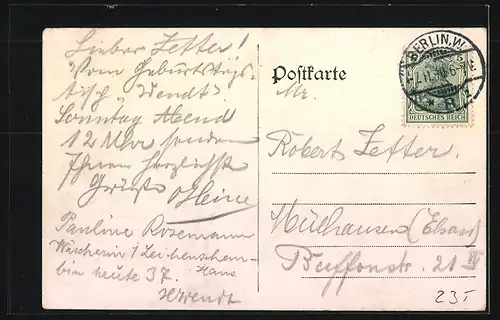 Lieber Zetter!
"Vom Geburtstags-
tisch "Wendt"
Sonntag Abend
12 Uhr senden
Ihnen herzlichste
Grüße Heine
Pauline Rosemann
Wäscherin
heute 37.
Hans
HWendt
Postkarte
BERLIN.W.
DEUTSCHES REICH
Robert Zetter.
Mülhausen (Elsass)
Buffonstr. 21
235